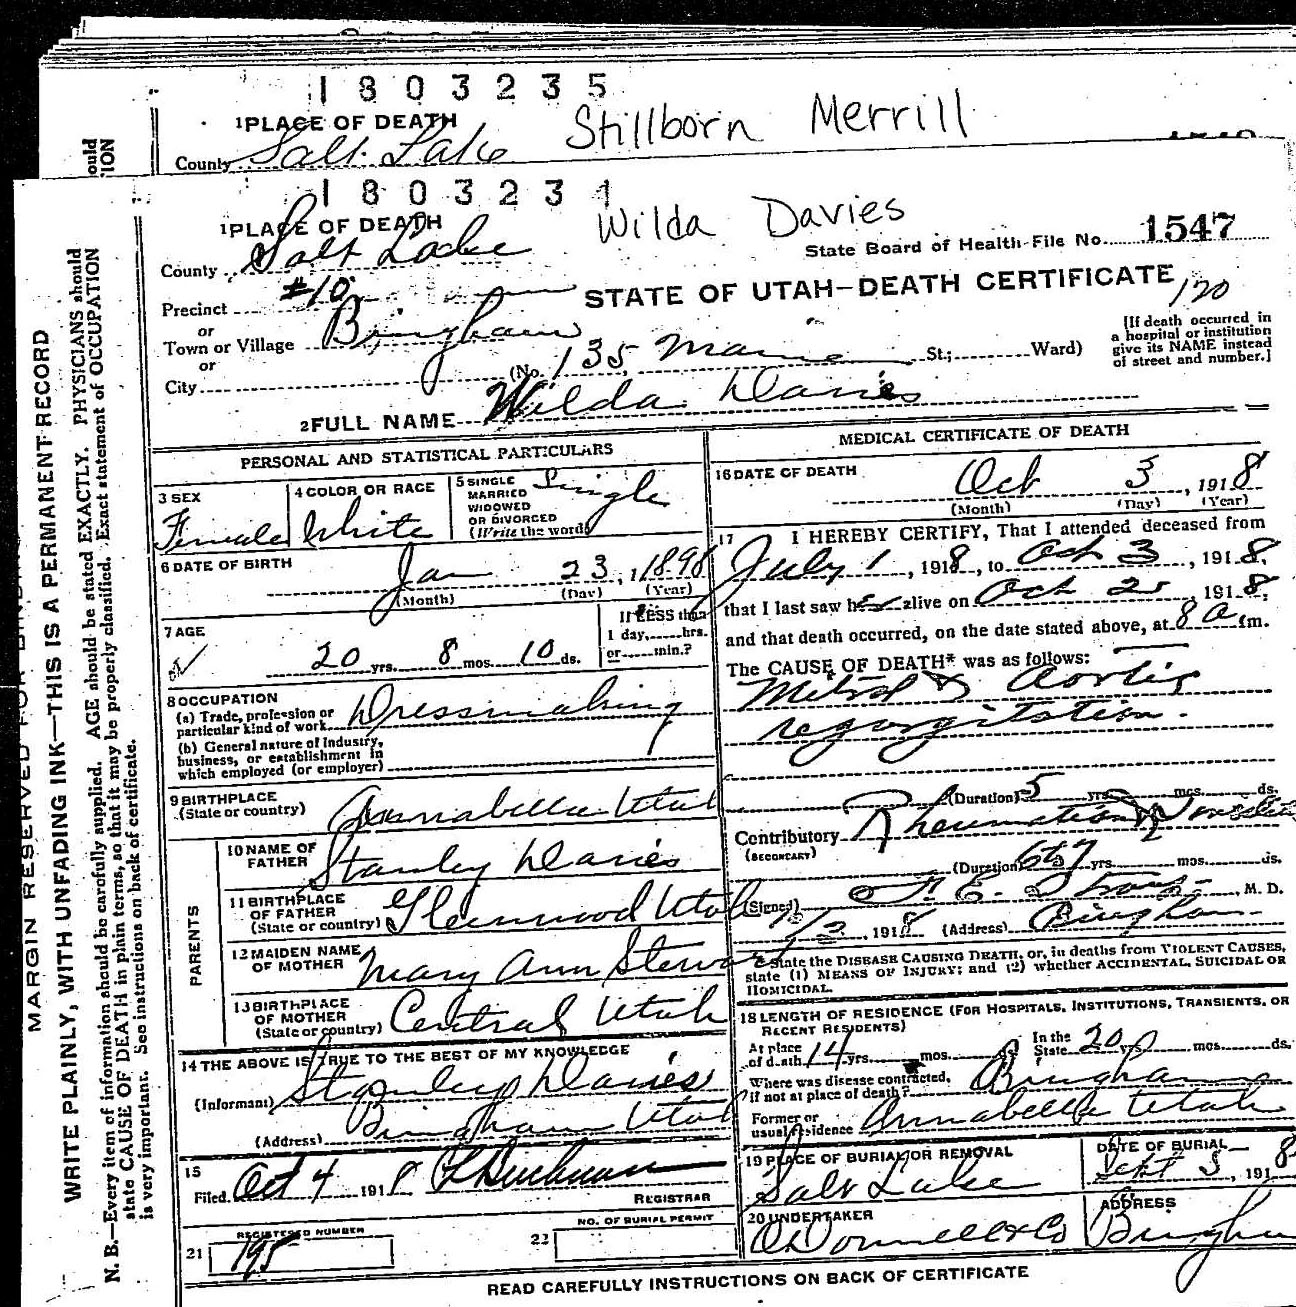 1803235
1 PLACE OF DEATH Stillborn Merrill
County Salt Lake
1803231
1 PLACE OF DEATH Wilda Davies
State Board of Health File No. 1547
County Salt Lake
STATE OF UTAH—DEATH CERTIFICATE
120
Precinct #10
or
Town or Village Bingham
or
City (No. 135 Main St.; Ward)
[If death occurred in
a hospital or institution
give its NAME instead
of street and number.]
2 FULL NAME Wilda Davies
PERSONAL AND STATISTICAL PARTICULARS
3 SEX Female
4 COLOR OR RACE White
5 SINGLE
MARRIED
WIDOWED
OR DIVORCED
(Write the word) Single
6 DATE OF BIRTH Jan 23, 1898
(Month) (Day) (Year)
7 AGE 20 yrs. 8 mos. 10 ds.
If LESS than
1 day, hrs.
or min.?
8 OCCUPATION
(a) Trade, profession or
particular kind of work Dressmaking
(b) General nature of industry,
business, or establishment in
which employed (or employer)
9 BIRTHPLACE
(State or country) Annabella Utah
PARENTS
10 NAME OF
FATHER Stanley Davies
11 BIRTHPLACE
OF FATHER
(State or country) Glenwood Utah
12 MAIDEN NAME
OF MOTHER Mary Ann Stewart
13 BIRTHPLACE
OF MOTHER
(State or country) Central Utah
14 THE ABOVE IS TRUE TO THE BEST OF MY KNOWLEDGE
(Informant) Stanley Davies
(Address) Bingham Utah
15
Filed Oct 4 191 8
REGISTRAR
REGISTERED NUMBER
21 195
NO. OF BURIAL PERMIT
22
MEDICAL CERTIFICATE OF DEATH
16 DATE OF DEATH Oct 3, 1918
(Month) (Day) (Year)
17 I HEREBY CERTIFY, That I attended deceased from
July 1, 1918, to Oct 3, 1918,
that I last saw her alive on Oct 2, 1918,
and that death occurred, on the date stated above, at 8 a m.
The CAUSE OF DEATH* was as follows:
Mitral & Aortic
regorgitation.
(Duration) 5 yrs. mos. ds.
Contributory Rheumatism &
(SECONDARY)
(Duration) yrs. mos. ds.
(Signed) , M. D.
, 1918 (Address) Bingham
* State the DISEASE CAUSING DEATH, or, in deaths from VIOLENT CAUSES,
state (1) MEANS OF INJURY; and (2) whether ACCIDENTAL, SUICIDAL OR
HOMICIDAL.
18 LENGTH OF RESIDENCE (FOR HOSPITALS, INSTITUTIONS, TRANSIENTS, OR
RECENT RESIDENTS)
At place
of death 14 yrs. mos. In the
State 20 yrs. mos. ds.
Where was disease contracted,
if not at place of death? Bingham
Former or
usual residence Annabella Utah
19 PLACE OF BURIAL OR REMOVAL
Salt Lake
DATE OF BURIAL
Sept 5, 1918
20 UNDERTAKER
O'Donnell & Co
ADDRESS
Bingham
READ CAREFULLY INSTRUCTIONS ON BACK OF CERTIFICATE
MARGIN RESERVED FOR
WRITE PLAINLY, WITH UNFADING INK—THIS IS A PERMANENT RECORD
N. B.—Every item of information should be carefully supplied. AGE should be stated EXACTLY. PHYSICIANS should
state CAUSE OF DEATH in plain terms, so that it may be properly classified. Exact statement of OCCUPATION
is very important. See instructions on back of certificate.